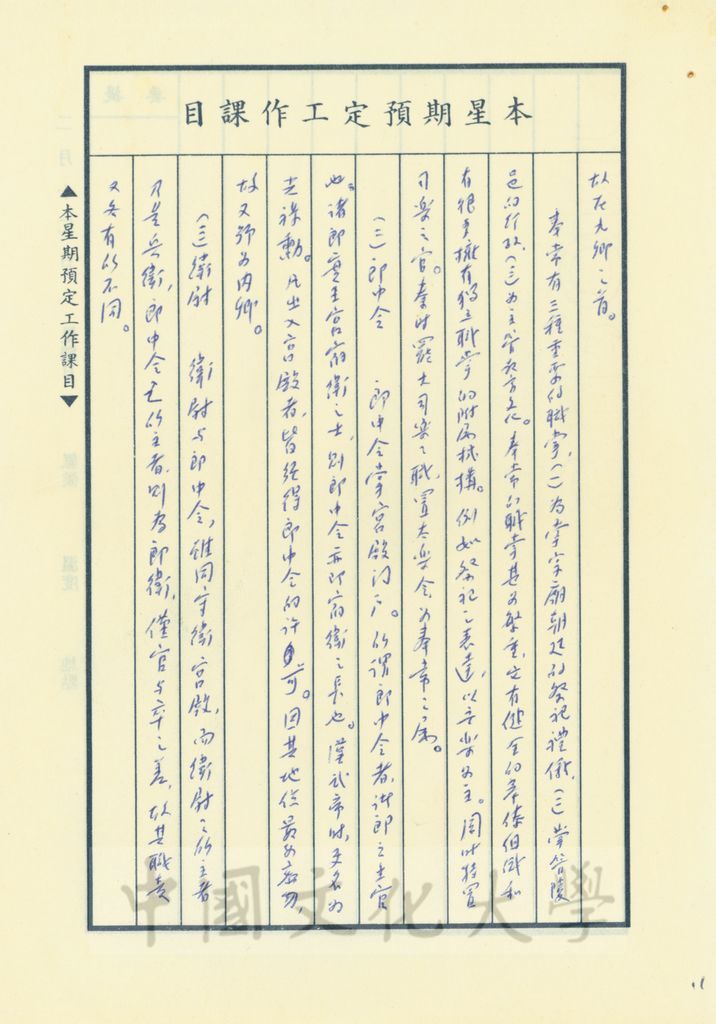 本星期預定工作課目
故在九卿之首。
奉常有三種重要的職掌，(一)為掌宗廟朝廷的祭祀禮儀，(二)掌管陵
邑的行政，(三)為主管教育文化。奉常的職掌甚為繁重，它有健全的組織和
有很多擁有獨立職掌的附屬機構。例如祭祀之表達，以音樂為主。周時特置
司樂之官。秦時罷大司樂之職，置太樂令，為奉常之屬。
(二)郎中令　郎中令掌宮殿門戶。所謂郎中令者，諸郎之主官
也。諸郎實主宮宿衛之士，則郎中令亦即宿衛之長也。漢武帝時，更名為
光祿勳。凡出入宮殿者，皆經得郎中令的許可。因其地位最為密切，
故又號為內卿。
(三)衛尉　衛尉與郎中令，雖同守衛宮殿，而衛尉之所主者
乃是兵衛，郎中令之所主者，則為郎衛，僅官與卒之差，故其職責
又各有所不同。
▲本星期預定工作課目▼
中國文化大學